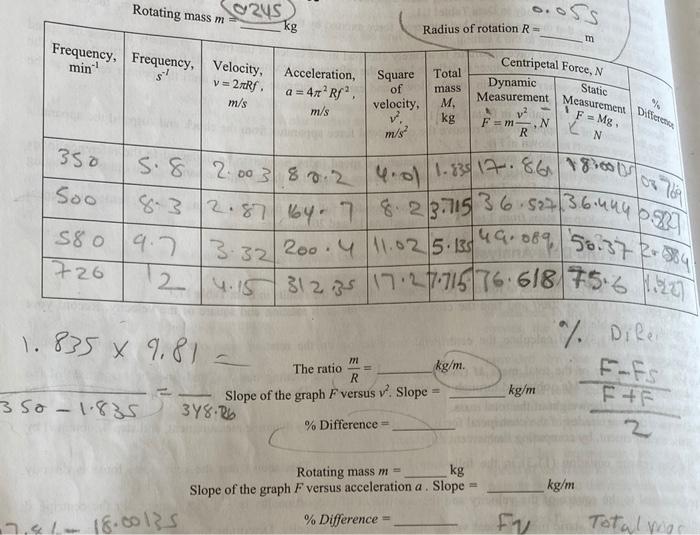 Rotating mass m = 0245 kg
0.055
Radius of rotation R = m
Frequency, min⁻¹
Frequency, s⁻¹
Velocity, v = 2πRf, m/s
Acceleration, a = 4π²Rf², m/s
Square of velocity, v², m/s²
Total mass M, kg
Centripetal Force, N
Dynamic Measurement F = m v²/R, N
Static Measurement F = Mg, N
% Difference
350 5.8 2.003 80.2 4.01 1.835 17.86 18.00135
500 8.3 2.87 164.7 8.2 3.715 36.527 36.444
580 9.7 3.32 200.4 11.02 5.135 49.089 50.37
726 12 4.15 312.35 17.2 7.715 76.618 75.6
% Difer
1.835 x 9.81 =
The ratio m/R = kg/m.
F-Fs
F+F
2
350-1.835 = 348.26
Slope of the graph F versus v². Slope = kg/m
% Difference =
Rotating mass m = kg
Slope of the graph F versus acceleration a. Slope = kg/m
18.00135
% Difference =
Total